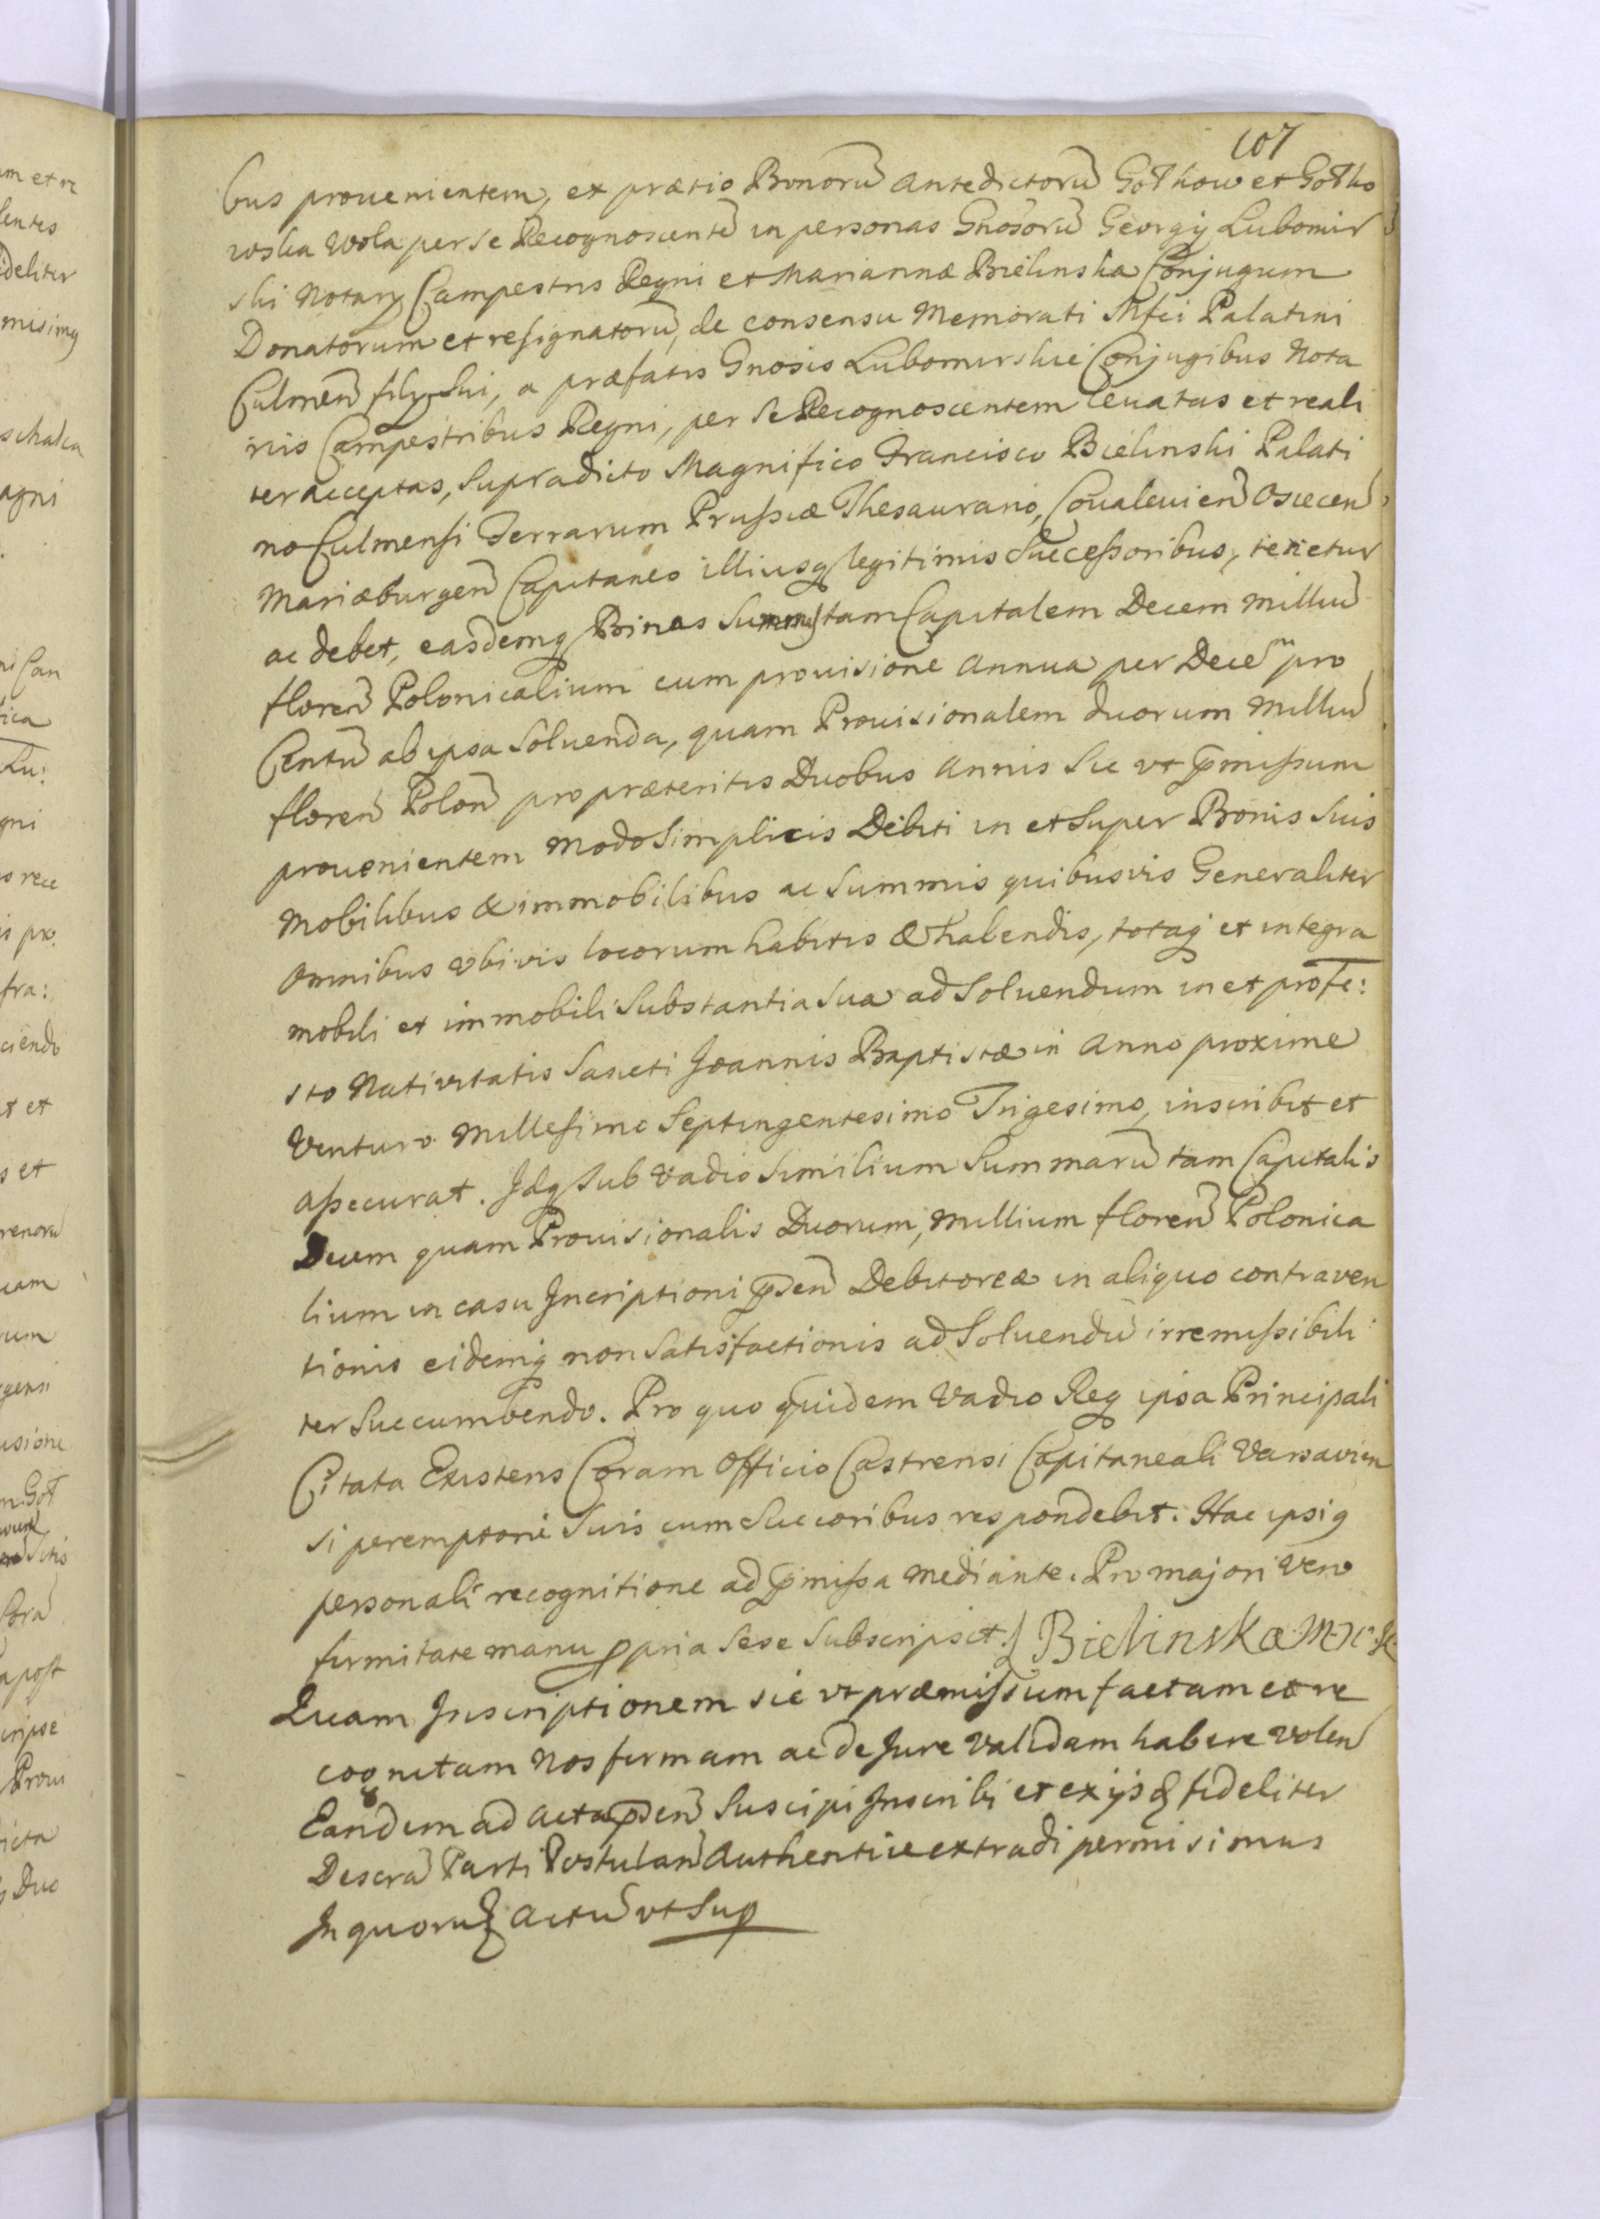 107
bus prouenientem, ex prætio Bonorū antedictorū Gołkow et Gołko
wska Wola per se Recognoscentē in personas Gnosorū Georgij Lubomir
ski Notarij Campestris Regni et Mariannæ Bielinska Conjugum
Donatorum et resignatorū, de consensu Memorati Mfci Palatini
Culmeñ filij Sui, a præfatis Gnosis Lubomirskie Conjugibus Nota
riis Campestribus Regni, per se Recognoscentem leuatas et reali
ter acceptas, Supradicto Magnifico Francisco Bielinski Palati
no Culmensi Terrarum Prussiæ Thesaurario, Coualeuieñ Osieceñ
Mariæburgeñ Capitaneo illiusq legitimis Successoribus, tenetur
ac debet, easdemq Binas Summas tam Capitalem Decem milliū
floreñ Polonicalium cum prouisione annua per Decem pro
Centū ab ipsa Soluenda, quam Prouisionalem duorum Milliū
floreñ Poloñ pro præteritis Duobus Annis Sic vt pmissum
prouenientem Modo Simplicis Debiti in et Super Bonis Suis
Mobilibus & immobilibus ac Summis quibusvis Generaliter
Omnibus vbivis locorum habitis & habendis, totaq et integra
mobili et immobili Substantia Sua ad Soluendum in et pro fe:
sto Nativitatis Sancti Joannis Baptistæ in Anno proxime
Venturo Millesimo Septingentesimo Trigesimo, inscribit et
assecurat. Idq Sub Vadio Similium Summarū tam Capitalis
Decem quam Prouisionalis Duorum, Millium floreñ Polonica
lium in casu Inscriptioni pseñ Debitoreæ in aliquo contraven
tionis eidemq non Satisfactionis ad Soluendū irremissibili
ter Succumbendo. Pro quo quidem Vadio Reg ipsa Principali
Citata Existens Coram Officio Castrensi Capitaneali Varsavien
si peremptorie Suis cum Succoribus respondebit. Hac ipsiq
personali recognitione ad pmissa mediante. Pro majori Vero
firmitate manu ppria Sese Subscripsit. Bielinska M. W. K.
Quam Inscriptionem sic vt præmissum factam et re
cognitam Nos firmam ac de Jure Validam habere Voleñ
Eandem ad Acta pseñ Suscipi Inscribi et ex ijs fideliter
Descra Parti Postulañ Authentice extradi permisimus
In quorū Actū vt Sup